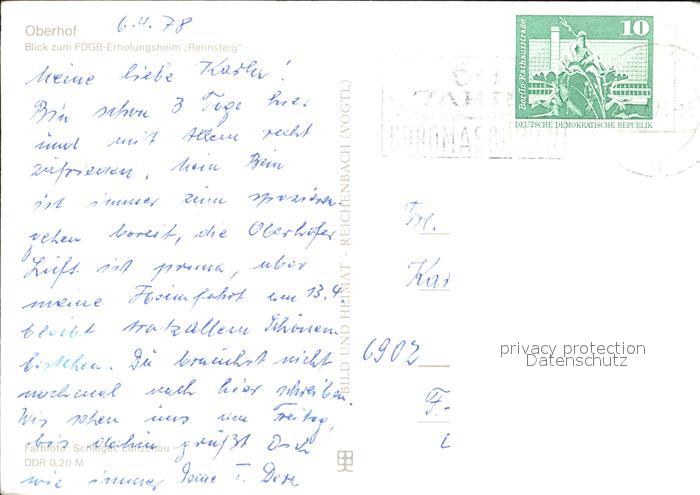 6.4.78
Oberhof
Blick zum FDGB-Erholungsheim „Rennsteig“
Meine liebe Karla!
Bin schon 3 Tage hier
und mit Allem recht
zufrieden. Mein Bein
ist immer zum spazieren-
gehen bereit, die Oberhofer
Luft ist prima, aber
meine Heimfahrt am 13.4.
bleibt trotz allem Schönen
bestehen. Du brauchst nicht
nochmal nach hier schreiben.
Wir sehen uns am Freitag,
bis dahin grüßt Dich
wie immer Deine T. Dora
Farbfoto: Schlegel,
DDR 0,20 M
BILD UND HEIMAT · REICHENBACH (VOGTL)
10
Berlin-Rathausstraße
DEUTSCHE DEMOKRATISCHE REPUBLIK
60
JAHRE
Frl.
Kar
6902
F.-
privacy protection
Datenschutz